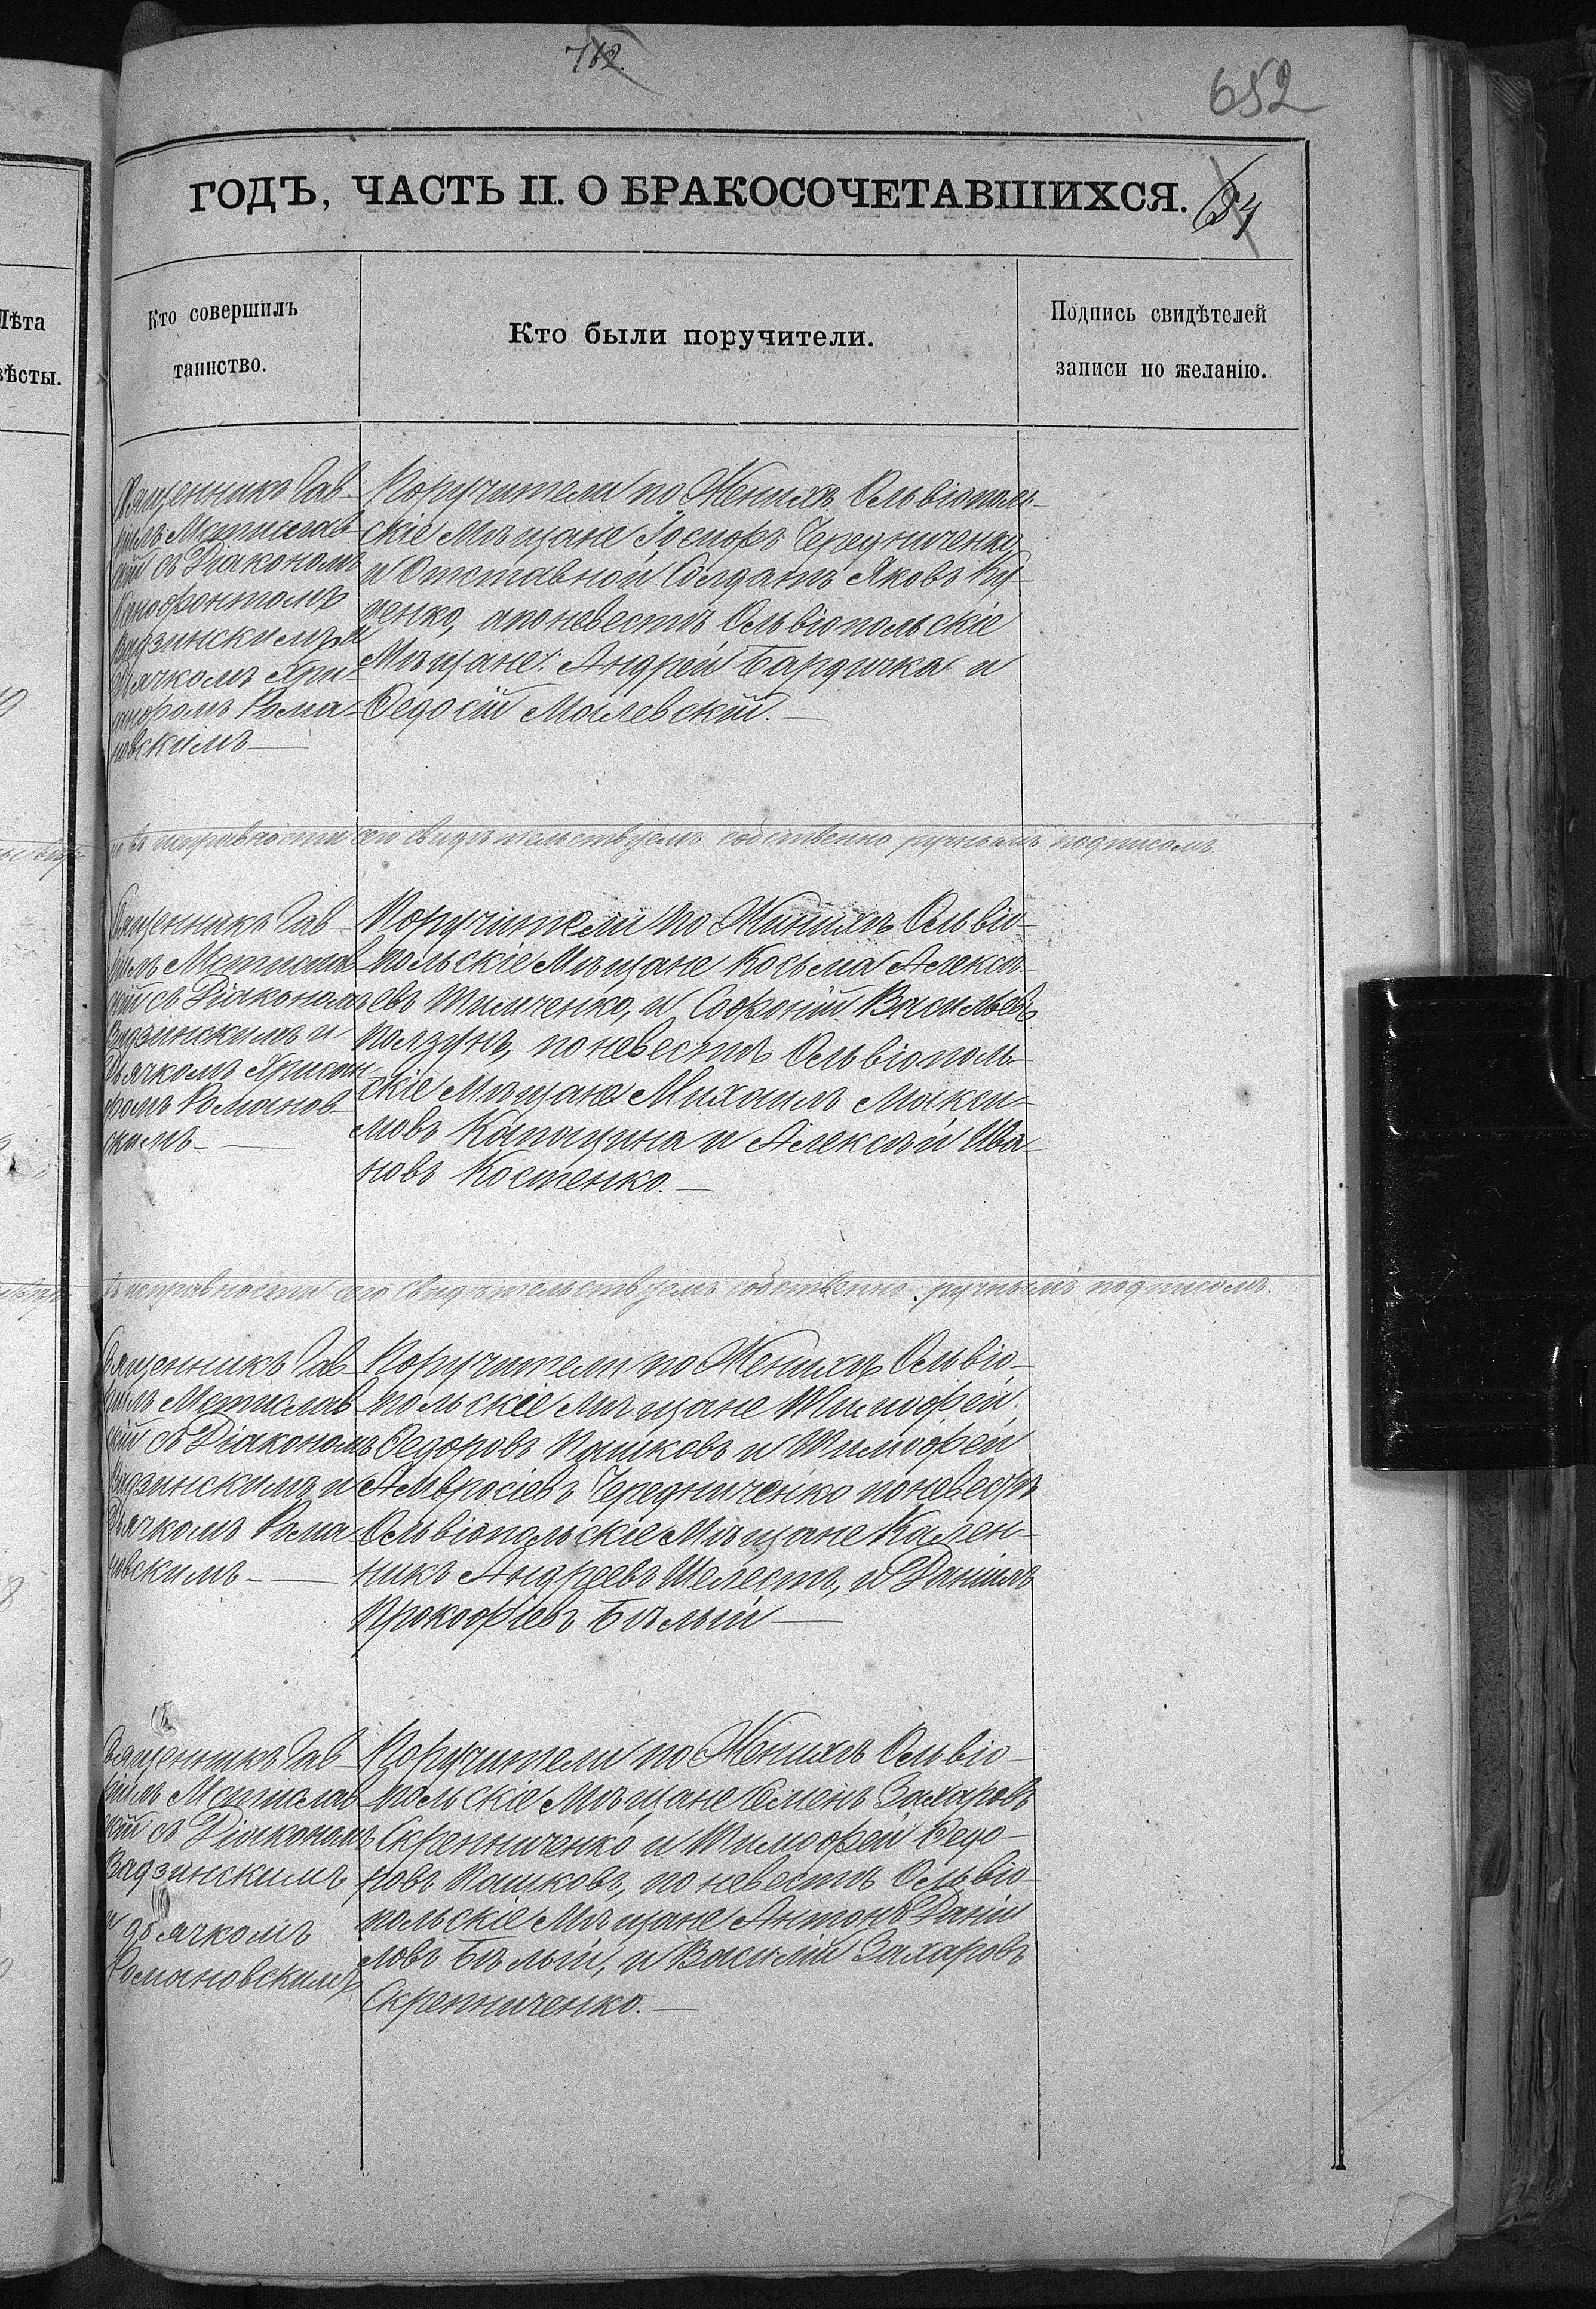 712.
652
ГОДЪ, ЧАСТЬ II. О БРАКОСОЧЕТАВШИХСЯ.
Лѣта
вѣсты.
Кто совершилъ
таинство.
Кто были поручители.
Подпись свидѣтелей
записи по желанію.
Священникъ Гав-
ріилъ Мстислав-
скій съ Діакономъ
Ксенофонтомъ
Вадзинскимъ и
Дьячкомъ Хри-
санфомъ Рома-
новскимъ
Поручители по Женихѣ Ольвіополь-
скіе Мѣщане Іосифъ Чередниченко,
и Отставной Солдатъ Яковъ Ку-
ценко, а по невестѣ Ольвіопольскіе
Мѣщане: Андрей Бардичка и
Ѳедосій Моглевскій.
въ исправности сего свидѣтельствуемъ собственно ручнымъ подписомъ
Священникъ Гав-
ріилъ Мстислав-
скій съ Діакономъ
Вадзинскимъ и
Дьячкомъ Хрисан-
фомъ Романов-
скимъ
Поручители по Женихѣ Ольвіо-
польскіе Мѣщане Косьма Алексѣ-
евъ Тимченко, и Софоній Васильевъ
Ползунъ, по невестѣ Ольвіополь-
скіе Мѣщане Михаилъ Макси-
мовъ Капощина и Алексѣй Ива-
новъ Костенко.
въ исправности сего свидѣтельствуемъ собственно ручнымъ подписомъ.
Священникъ Гав-
ріилъ Мстислав-
скій съ Діакономъ
Вадзинскимъ и
Дьячкомъ Рома-
новскимъ
Поручители по Женихѣ Ольвіо-
польскіе Мѣщане Тимофей
Ѳедоровъ Пашковъ и Тимофей
Амвросіевъ Чередниченко по невестѣ
Ольвіопольскіе Мѣщане Кален-
никъ Андреевъ Шелестъ, и Даніилъ
Прокофіевъ Бѣлый
Священникъ Гав-
ріилъ Мстислав-
скій съ Діакономъ
Вадзинскимъ
и дьячкомъ
Романовскимъ
Поручители по Женихѣ Ольвіо-
польскіе Мѣщане Семенъ Захаровъ
Скрепниченко и Тимофей Ѳедо-
ровъ Пашковъ, по невестѣ Ольвіо-
польскіе Мѣщане Антонъ Даніи-
ловъ Бѣлый, и Василій Захаровъ
Скрепниченко.